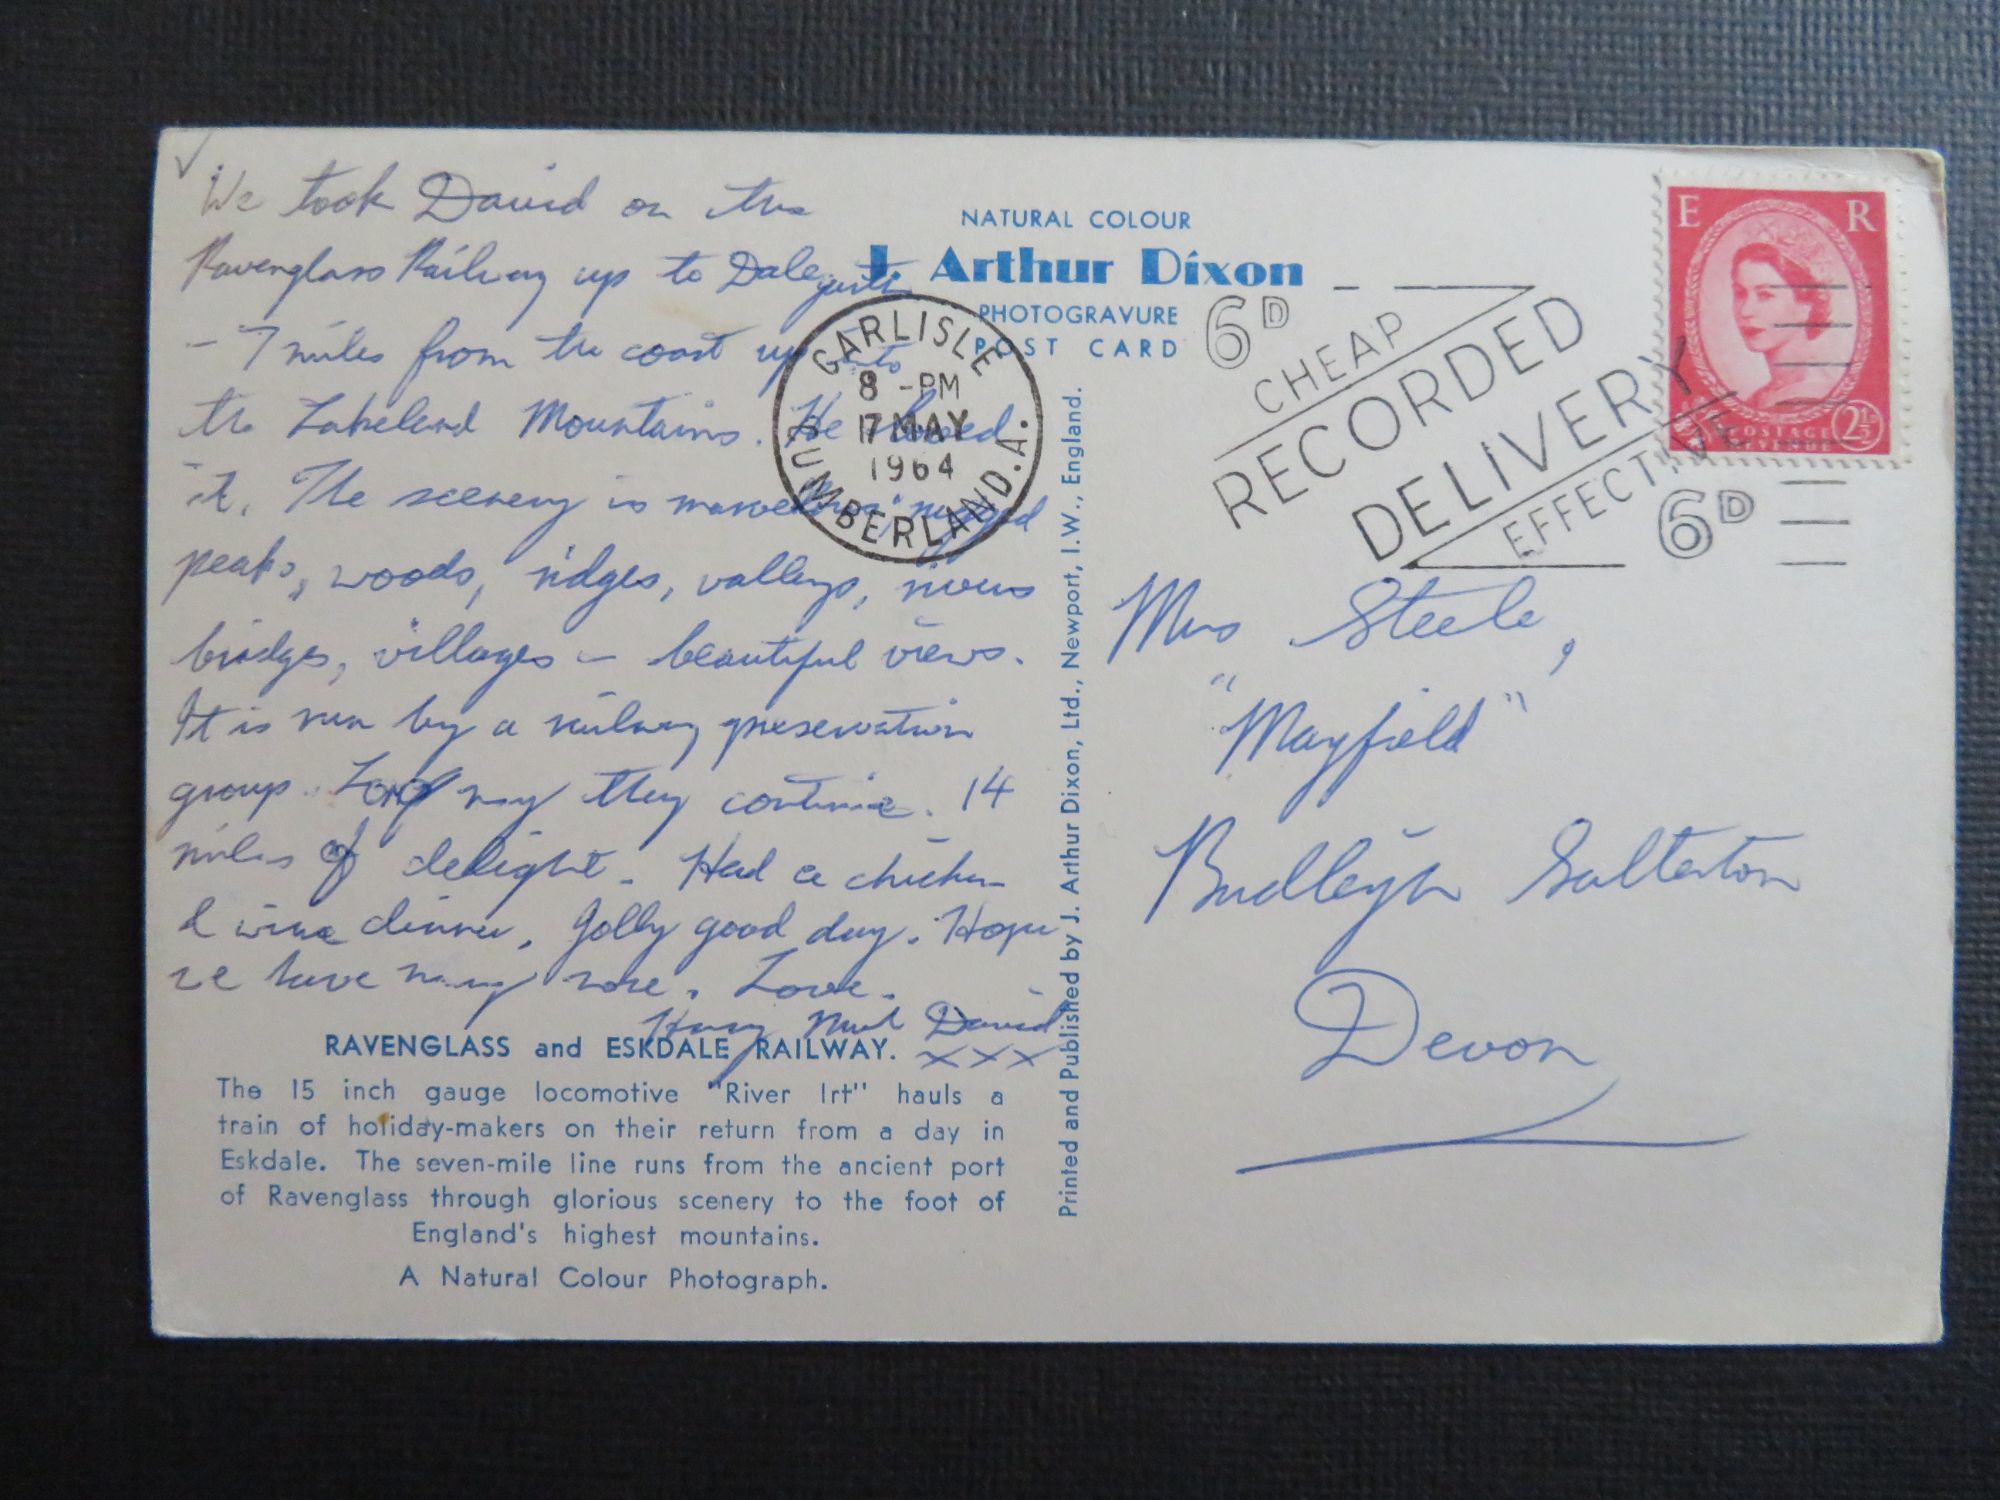 We took David on the
Ravenglass Railway up to Dalegarth
- 7 miles from the coast up into
the Lakeland Mountains. He loved
it. The scenery is marvellous, rugged
peaks, woods, ridges, valleys, rivers
bridges, villages - beautiful views.
It is run by a railway preservation
group. Long may they continue. 14
miles of delight. Had a chicken
& wine dinner. Jolly good day. Hope
we have many more. Love.
David
XXX
RAVENGLASS and ESKDALE RAILWAY.
The 15 inch gauge locomotive "River Irt" hauls a
train of holiday-makers on their return from a day in
Eskdale. The seven-mile line runs from the ancient port
of Ravenglass through glorious scenery to the foot of
England's highest mountains.
A Natural Colour Photograph.
Printed and Published by J. Arthur Dixon, Ltd., Newport, I.W., England.
NATURAL COLOUR
J. Arthur Dixon
PHOTOGRAVURE
POST CARD
CARLISLE
8 - PM
17 MAY
1964
CUMBERLAND. A.
6D
CHEAP
RECORDED
DELIVERY
EFFECTIVE
6D
E R
POSTAGE
REVENUE
2½D
Mrs Steele,
"Mayfield"
Budleigh Salterton
Devon